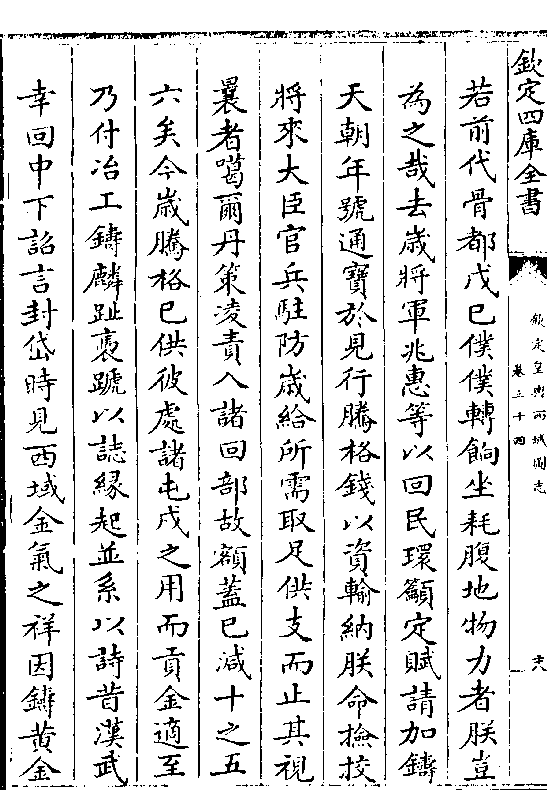 欽定四庫全書
欽定皇輿西域圖志
卷三十四
十八
若前代骨都戊巳僕僕轉餉坐耗腹地物力者朕豈
為之哉去歲將軍兆惠等以回民環籲定賦請加鑄
天朝年號通寶於見行騰格錢以資輸納朕命撫按
將來大臣官兵駐防歲給所需取足供支而止其視
曩者噶爾丹策凌責入諸回部故額蓋已減十之五
六矣今歲騰格已供彼處諸屯戍之用而貢金適至
乃付冶工鑄麟趾褭蹏以誌緣起並系以詩昔漢武
幸回中下詔言封岱時見西域金氣之祥因鑄黃金